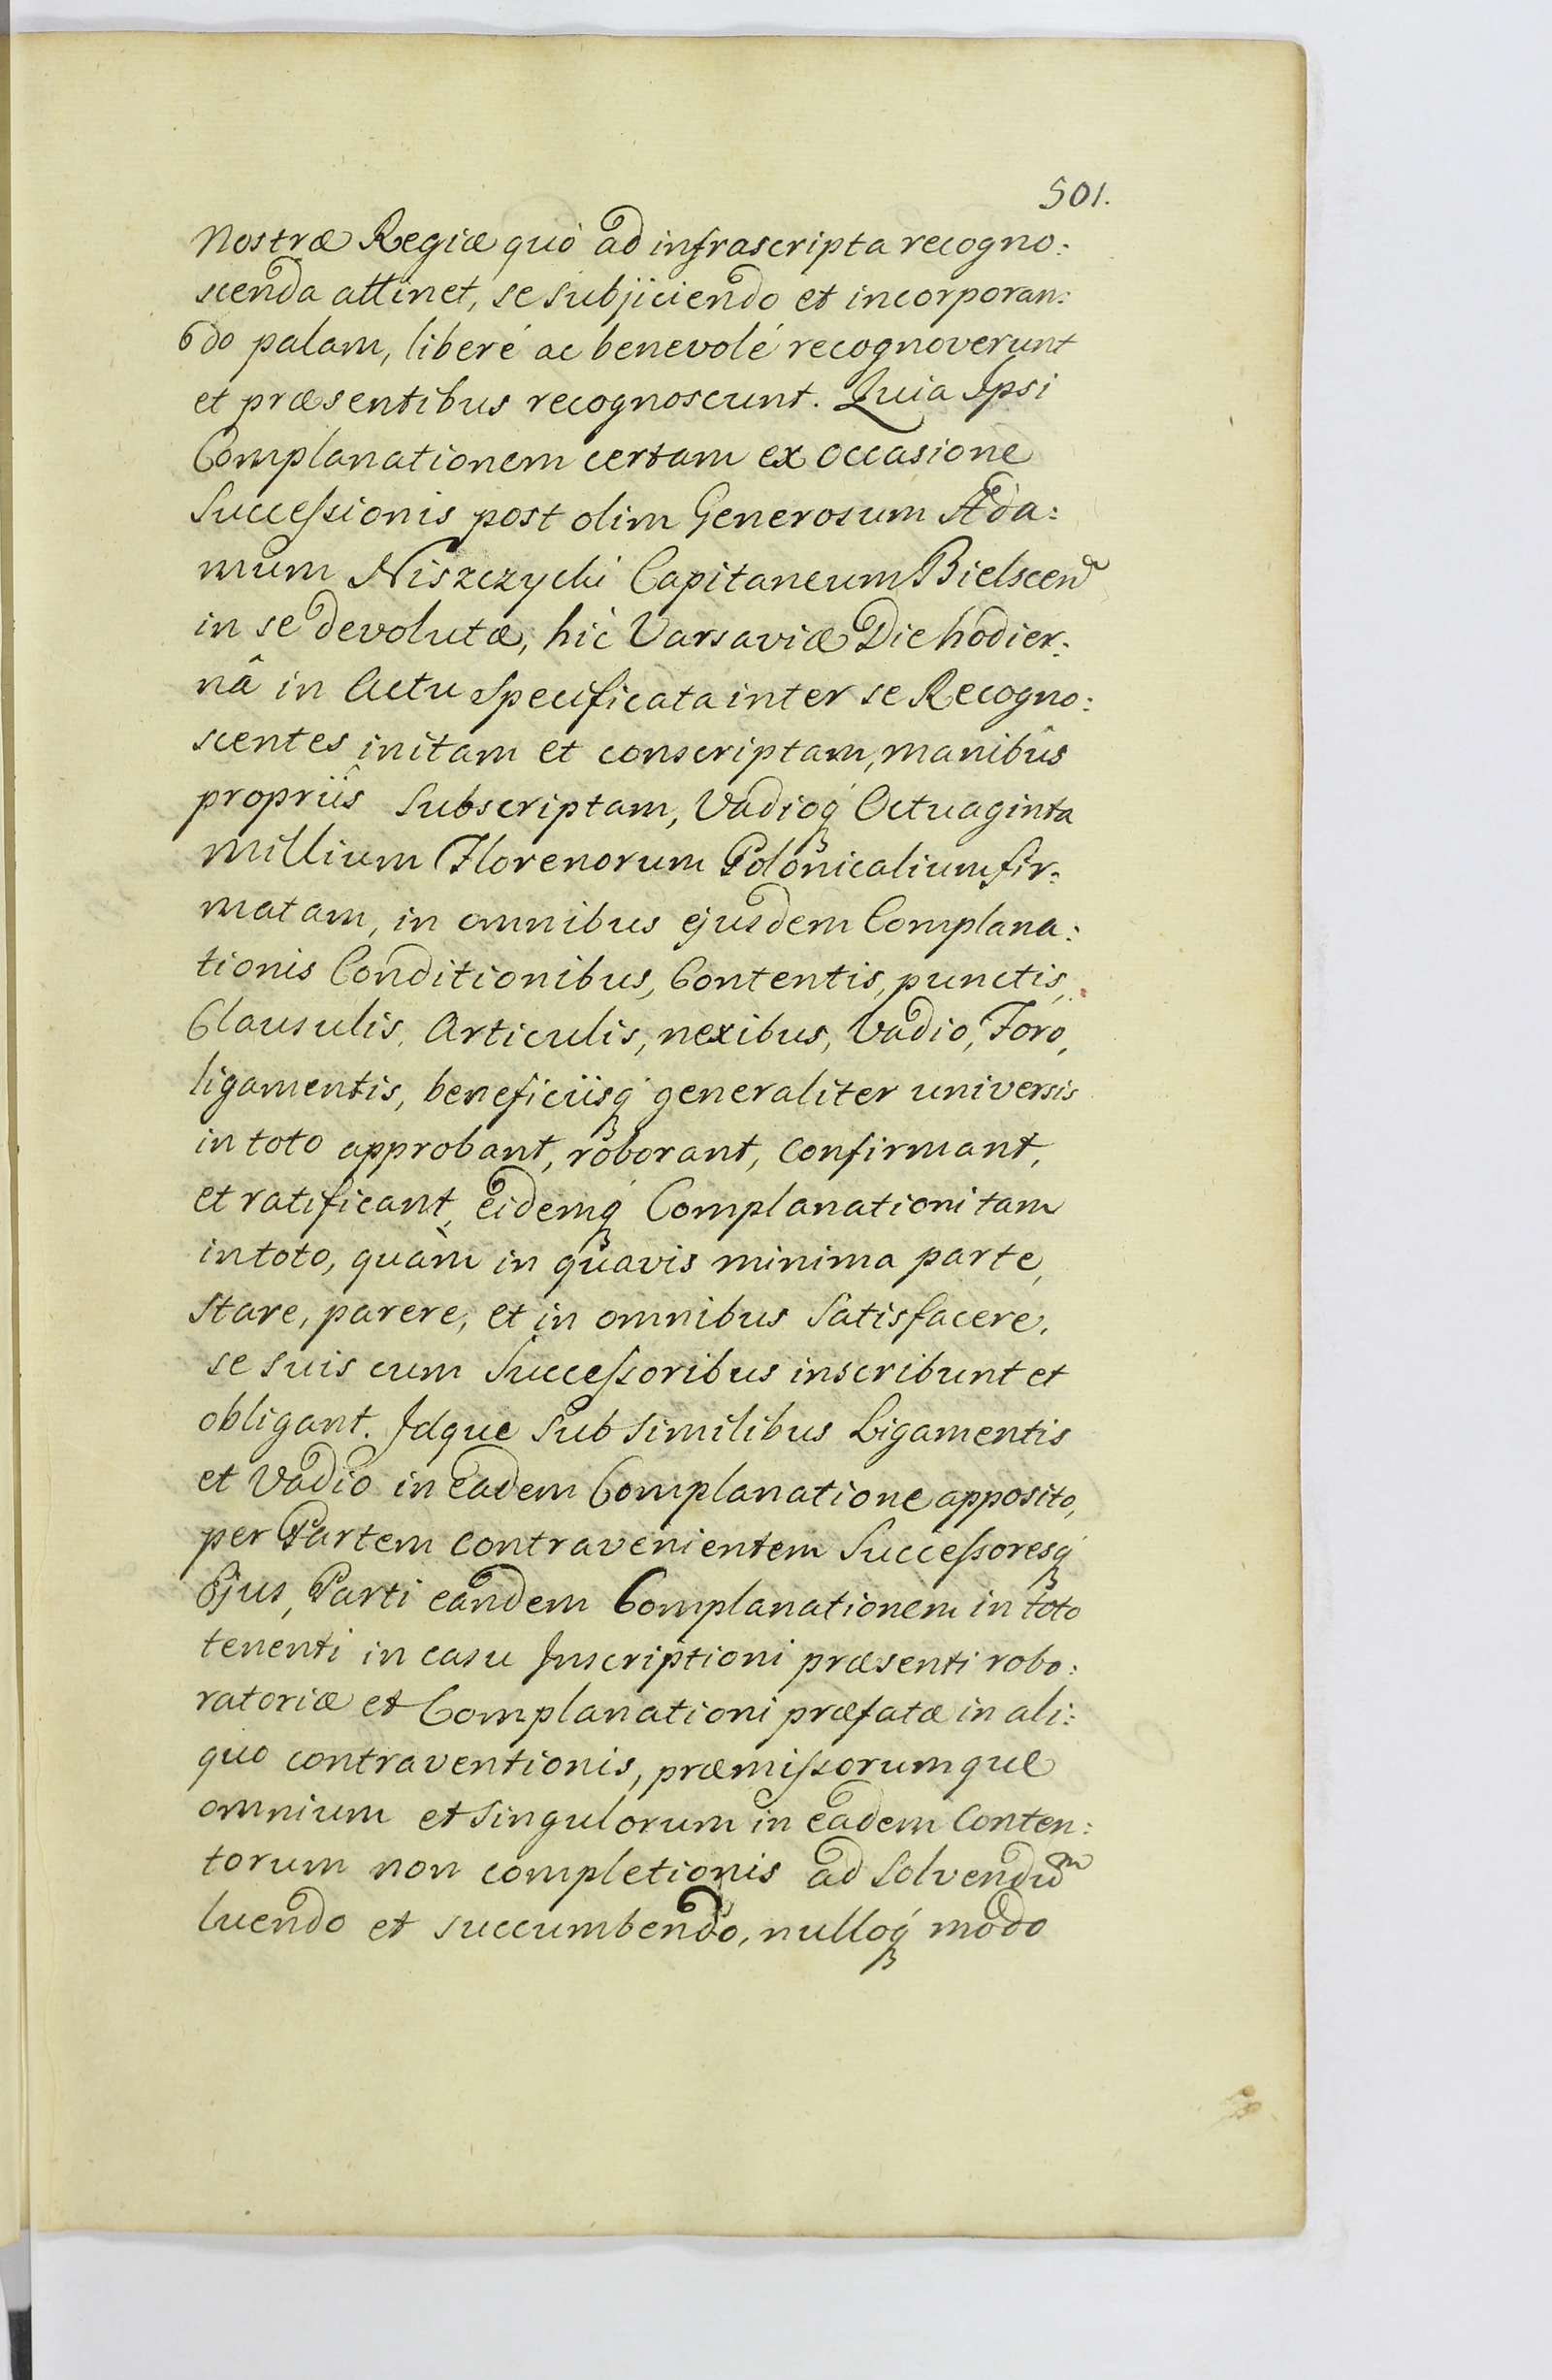 501.
nostræ Regiæ quò ad infrascripta recogno:
scenda attinet, se subjiciendo et incorporan:
do palam, liberé ac benevolé recognoverunt
et præsentibus recognoscunt. Quia Ipsi
Complanationem certam ex occasione
Successionis post olim Generosum Ada:
mum Niszczycki Capitaneum Bielscen
in se devolutæ, hic Varsaviæ Die hodier:
nâ in Actu specificata inter se Recogno:
scentes initam et conscriptam, manibus
propriis Subscriptam, Vadioq́ Octuaginta
Millium Florenorum Polonicalium fir:
matam, in omnibus ejusdem Complana:
tionis Conditionibus, Contentis, punctis,
Clausulis, Articulis, nexibus, Vadio, Foro,
ligamentis, beneficiisq́ generaliter universis
in toto approbant, roborant, confirmant,
et ratificant, eidemq́ Complanationi tam
in toto, quàm in quavis minima parte,
stare, parere, et in omnibus Satisfacere,
se suis cum Successoribus inscribunt et
obligant. Idque Sub similibus Ligamentis
et Vadio in eadem Complanatione apposito,
per Partem contravenientem Successoresq́
Ejus, Parti eandem Complanationem in toto
tenenti in casu Inscriptioni præsenti robo:
ratoriæ et Complanationi præfatæ in ali:
quo contraventionis, præmissorumque
omnium et singulorum in eadem Conten:
torum non completionis ad Solvendum
luendo et succumbendo, nulloq́ modo